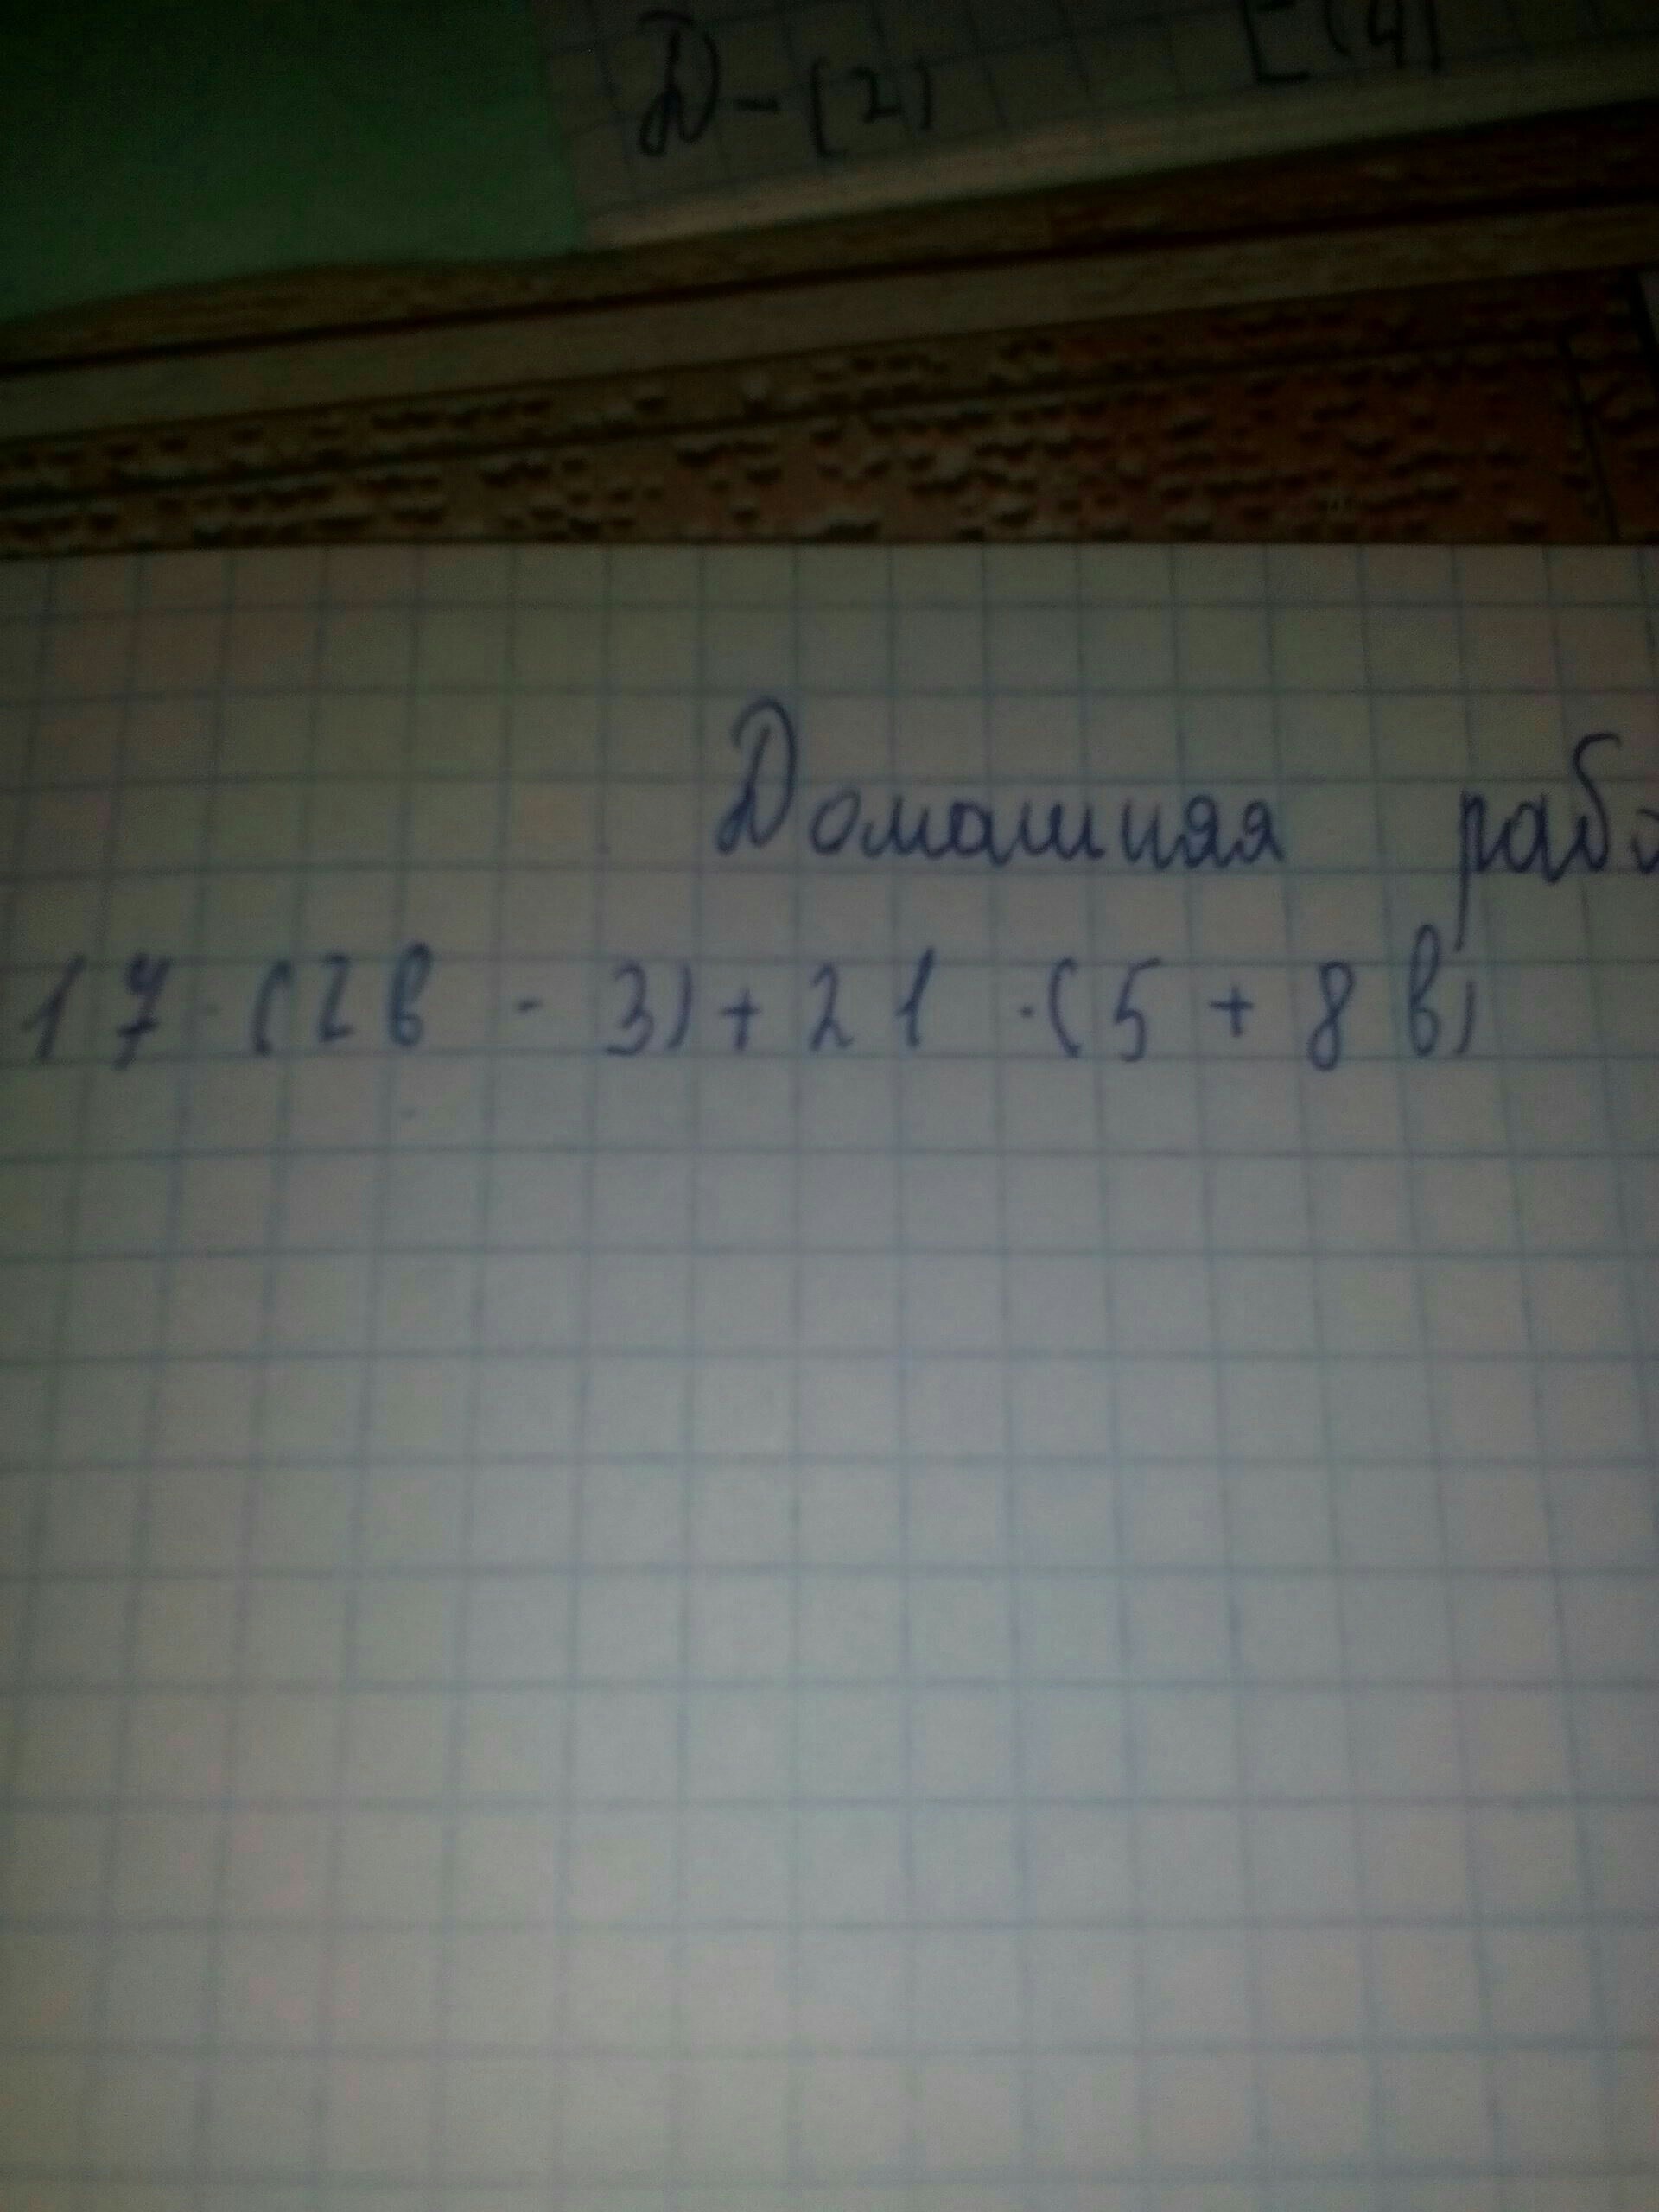 Д - (2)
Домашняя рабо
17 · (2в - 3) + 21 · (5 + 8в)